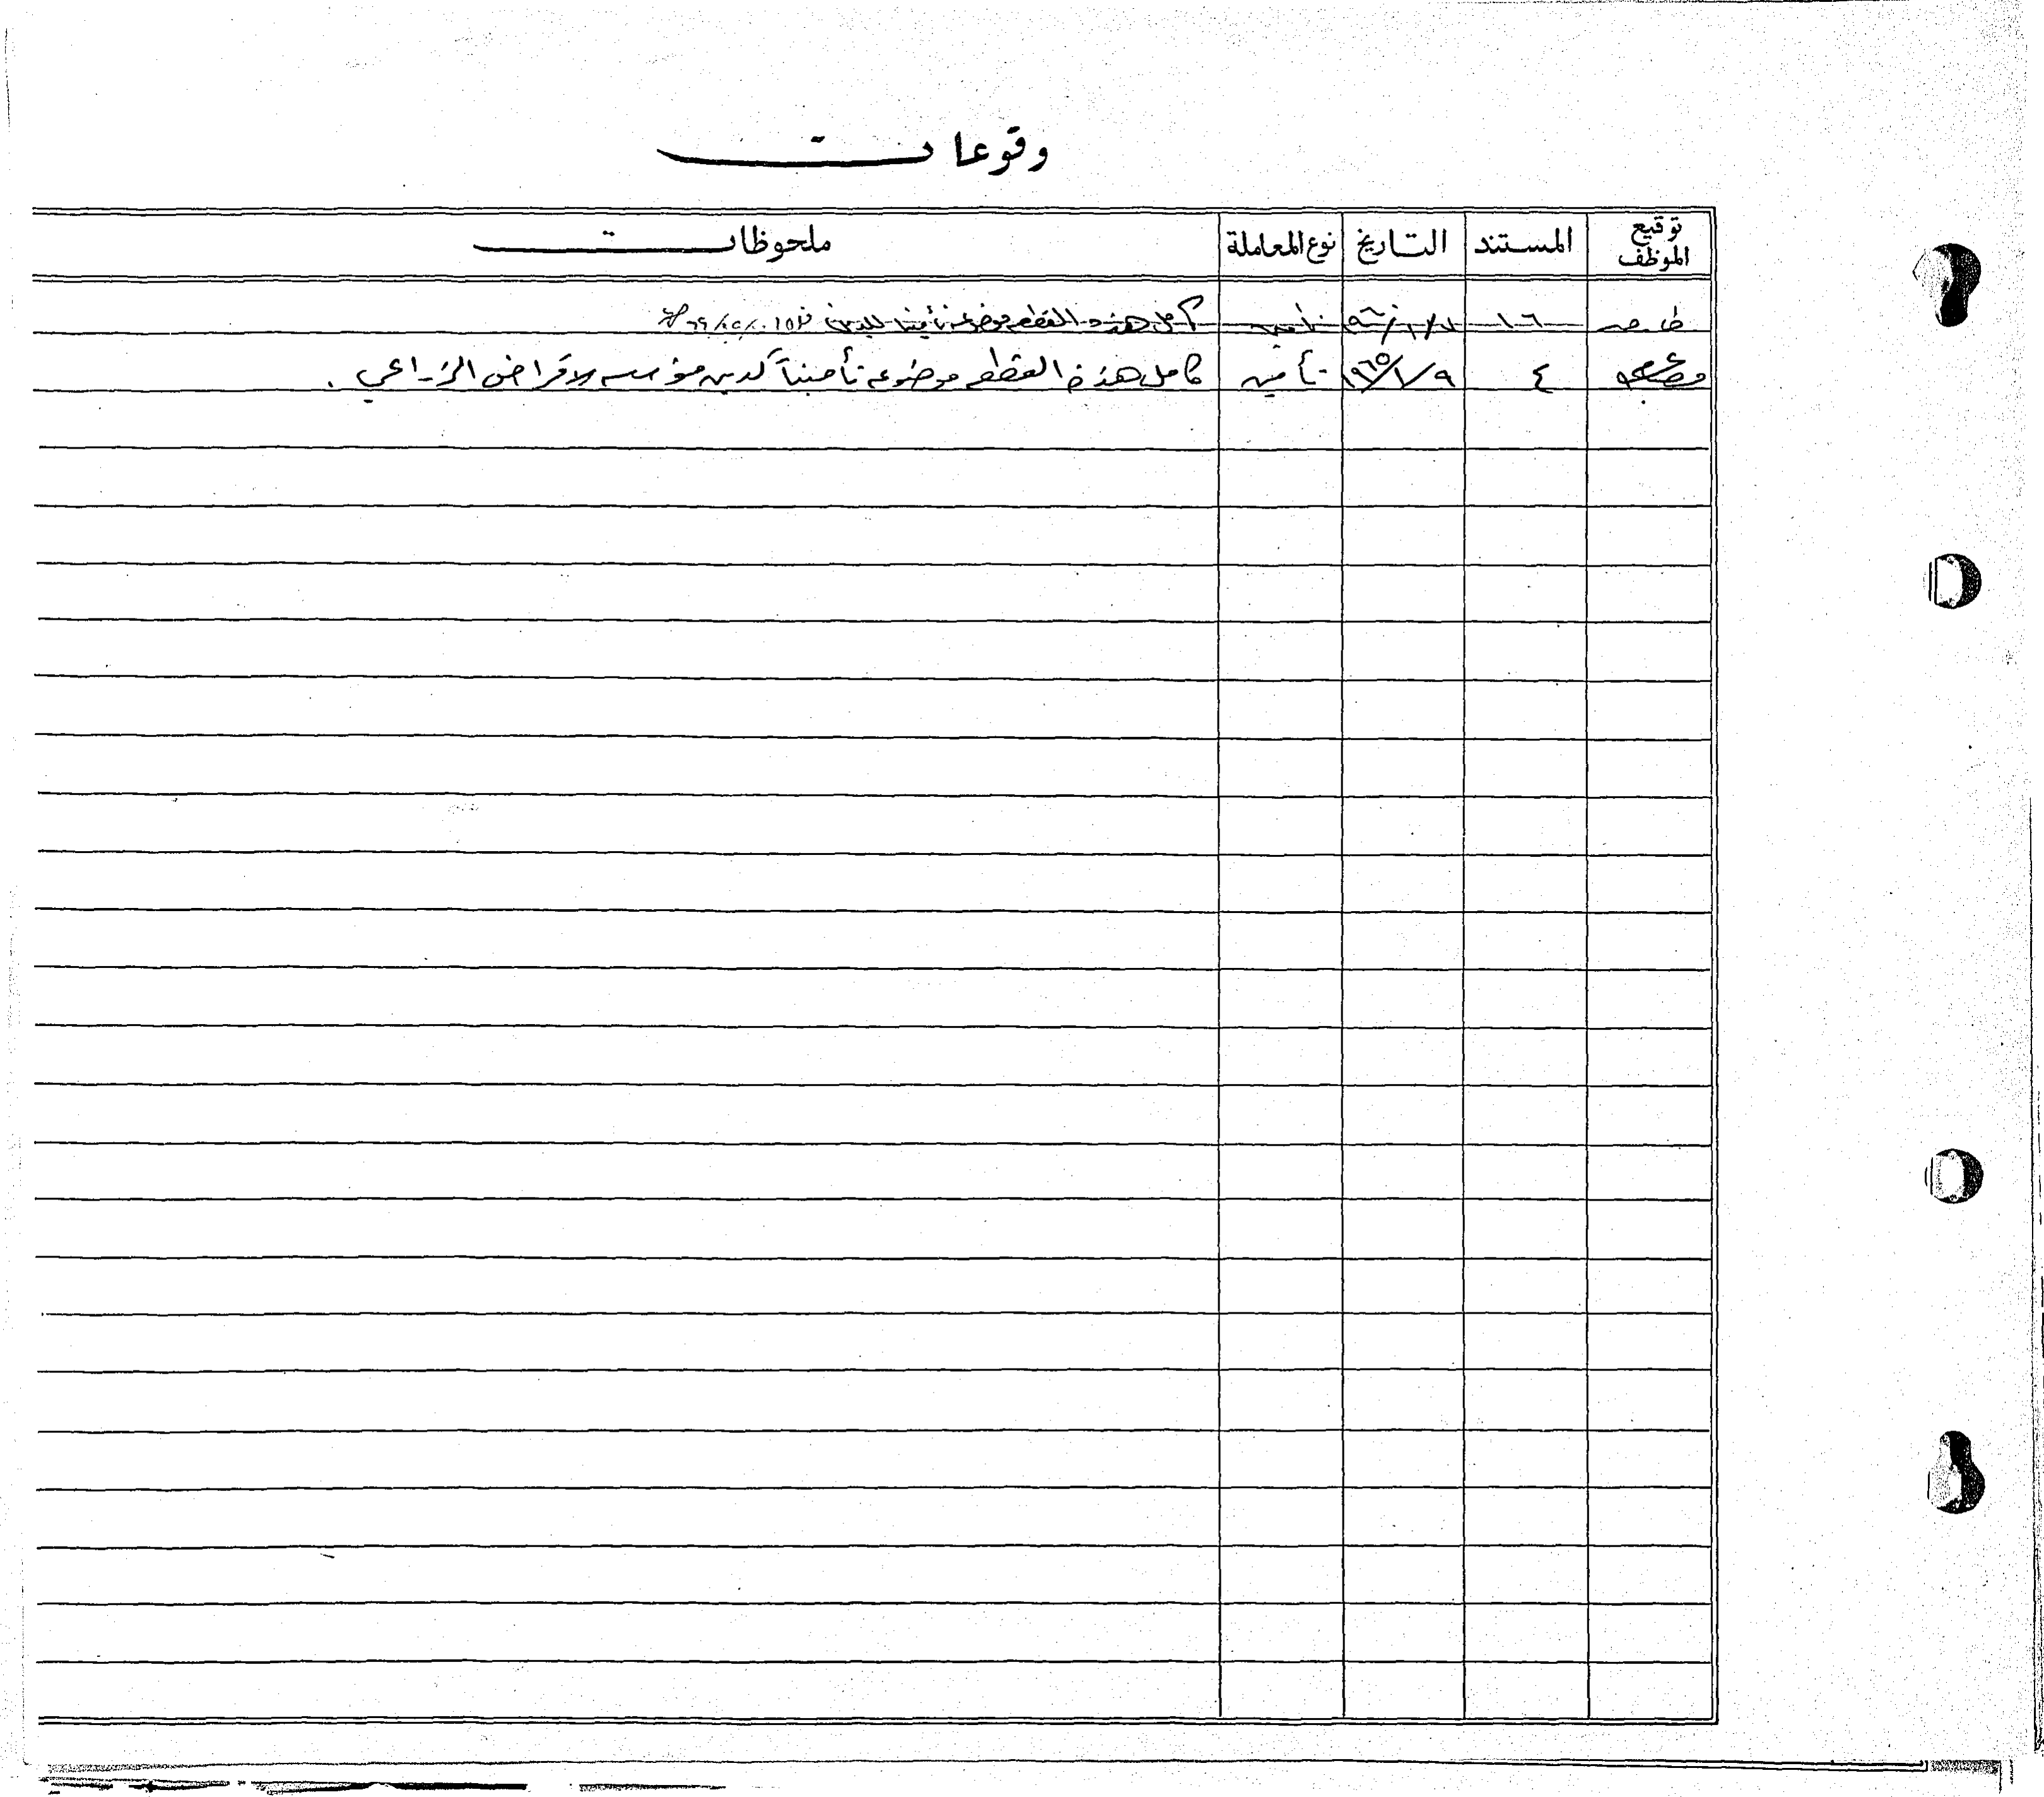 وقوعات
توقيع الموظف المستند التاريخ نوع المعاملة ملحوظات
١٦ تأمين كامل هذه القطعه موضوعه تأمينا للدين
٤ ١٩٦٥/١/٩ تأمين كامل هذه القطعه موضوعه تأميناً لدين مؤسسه الاقراض الزراعي .